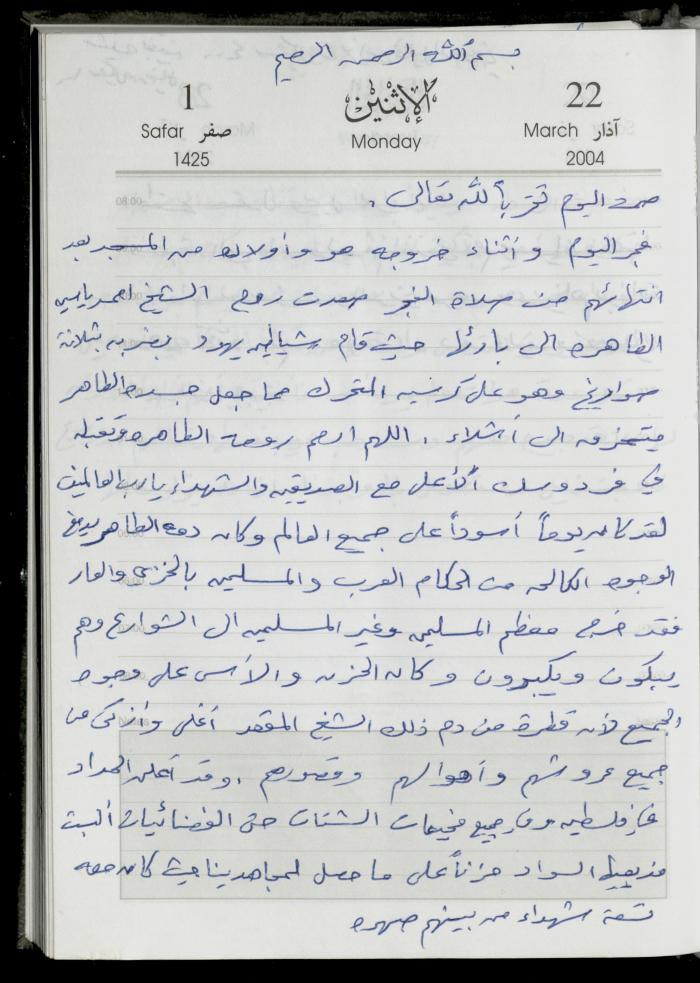 بسم الله الرحمن الرحيم
1 الإثنين 22
Safar صفر Monday March آذار
1425 2004
صمت اليوم تقرباً لله تعالى .
فجر اليوم وأثناء خروجه هو وأولاده من المسجد بعد
انتهائهم من صلاة الفجر صعدت روح الشيخ احمد ياسين
الطاهره الى بارئها حيث قام شياطين يهود بضربه بثلاثة
صواريخ وهو على كرسيه المتحرك مما جعل جسده الطاهر
يتمزق الى أشلاء . اللهم ارحم روحه الطاهره وتقبله
في فردوسك ألأعلى مع الصديقين والشهداء يا رب العالمين
لقد كان يوماً أسوداً على جميع العالم وكان دمه الطاهر يدمغ
الوجوه الكالحه من الحكام العرب والمسلمين بالخزي والعار
فقد خرج معظم المسلمين وغير المسلمين الى الشوارع وهم
يبكون ويكبرون وكان الحزن والأسى على وجوه
الجميع لأن قطرة من دم ذلك الشيخ المقعد أغلى وأزكى من
جميع عروشهم وأموالهم وقصورهم . وقد أعلن الحداد
في فلسطين وفي جميع مخيمات الشتات حتى الفضائيات ألبست
مذيعيها السواد حزناً على ما حصل لمجاهدينا حيث كان معه
تسعة شهداء من بينهم صهره